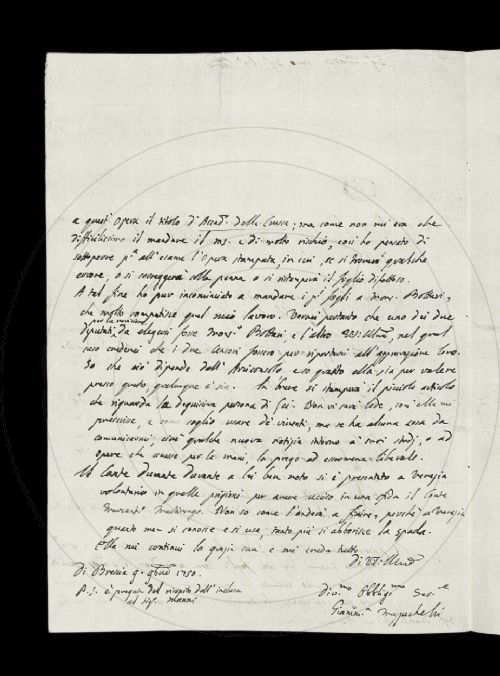 a quest'Opera il titolo d'Accad. della Crusca; ma come non mi era che
difficilissimo il mandare il ms. e di molto rischio, così ho pensato di
sottoporre p.a all'esame l'Opera stampata, in cui, se si troverà qualche
errore, o si correggerà colla penna o si ristamperà il foglio difettoso.
A tal fine ho pur incominciato a mandare i p.i fogli a Mons. Bottari,
che molto compatisce quel mio lavoro. Vorrei pertanto che uno dei due
per la revisione
deputati, da eleggersi fosse Mons.r Bottari, e l'altro V.S. Ill.ma, nel qual
caso crederei che i due Censori fossero per riportarsi all'approvazione loro.
So che ciò dipende dall'Arciconsolo, e so quanto ella sia per valere
presso questo, qualunque e' sia. In breve si stamperà il piccolo articolo
che riguarda la degnissima persona di Lei. Non vi sarà lode, così ella mi
prescrisse, e come soglio usare de' viventi, ma se ha alcuna cosa da
comunicarmi, cioè qualche nuova notizia intorno a' suoi studj, o ad
opere che avesse per le mani, la prego ad essermene liberale.
Il Conte Durante Durante a lei ben noto si è presentato a Venezia
volontario in quelle prigioni per avere ucciso in una sfida il Conte
Non so come l'anderà a finire, perché a Venezia
quanto men si conosce e si usa, tanto più si abborisce la spada.
Ella mi continui la grazia sua e mi creda tutto
Di V.S. Ill.ma
Di Brescia 9. 9bre 1750.
P.S. è pregata del ricapito dell'inclusa
al Sig. Manni
Div.mo Obblig.mo Ser.e
Giamm.a Mazzuchelli